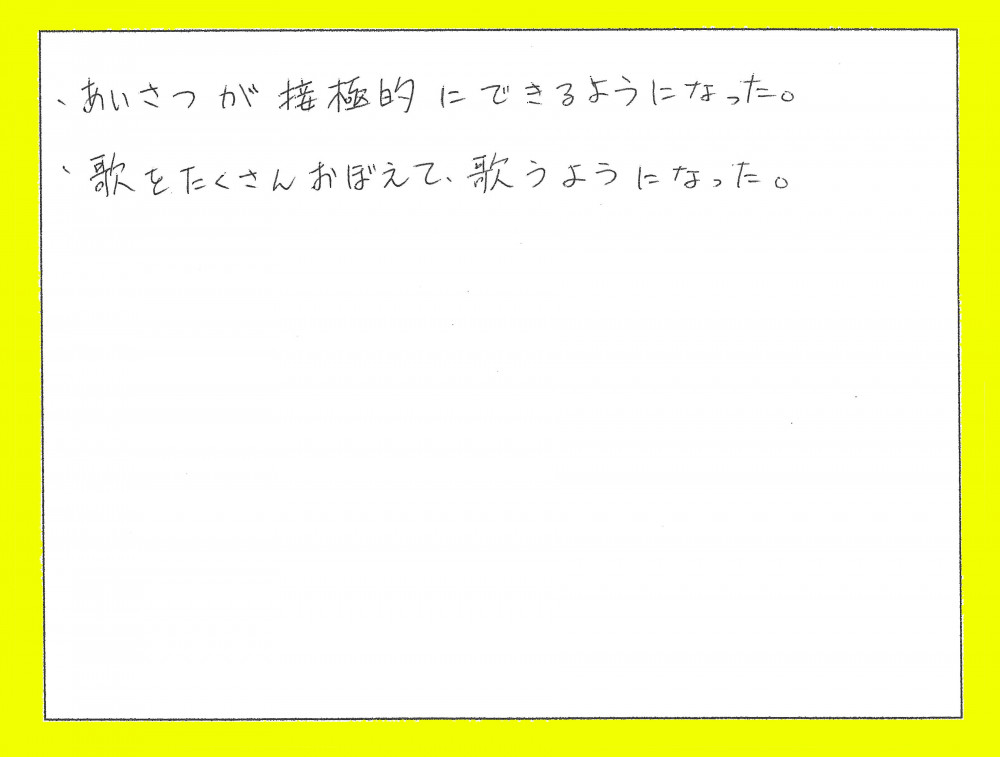 、あいさつが接極的にできるようになった。
、歌をたくさんおぼえて、歌うようになった。